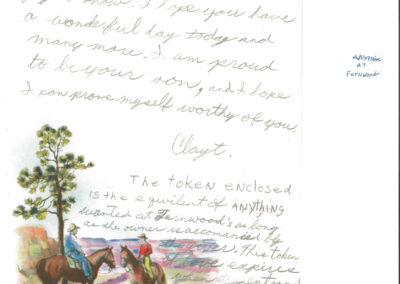 know. I hope you have
a wonderful day today and
many more. I am proud
to be your son, and I hope
I can prove myself worthy of you.
Clayt.
The token enclosed
is the equivilent of ANYTHING
wanted at Fernwood's as long
as the owner is accomanied by
the giver. This token
expires
when
ANYTHING
AT
FERNWOOD